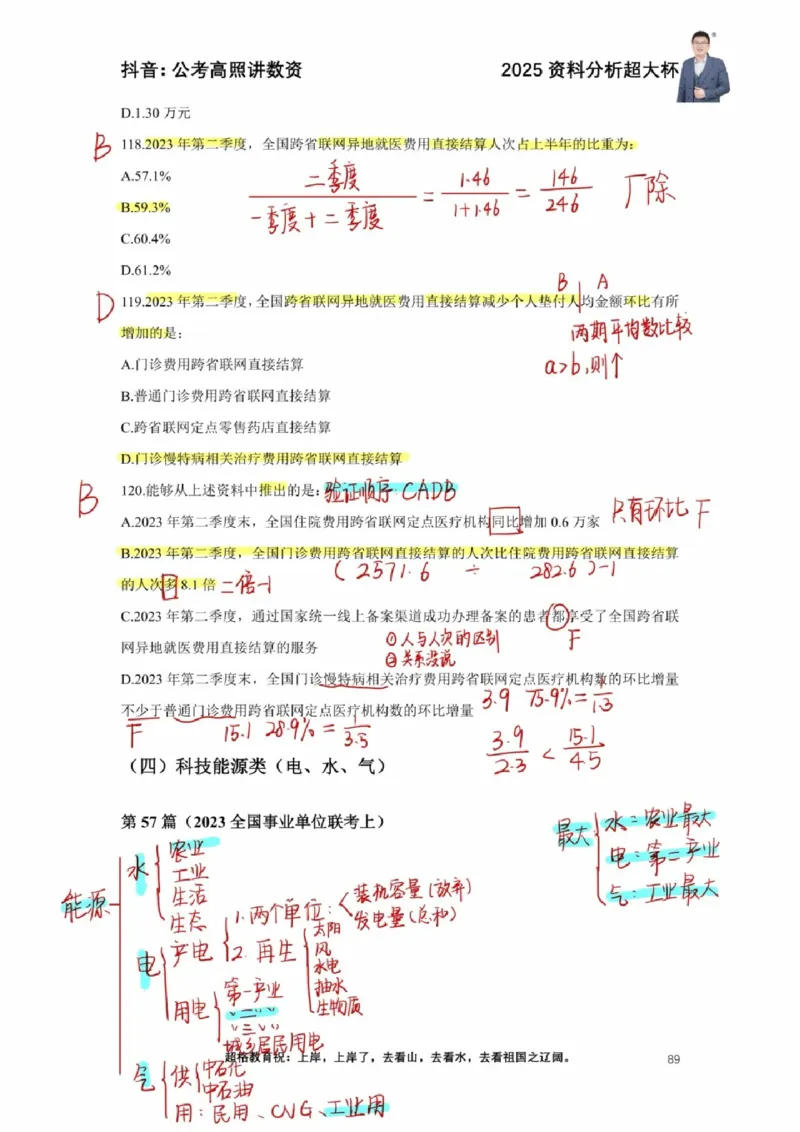 抖音：公考高照讲数资 2025 资料分析超大杯
D.1.30 万元
B 118.2023 年第二季度，全国跨省联网异地就医费用直接结算人次占上半年的比重为：
A.57.1%
二季度/一季度+二季度 = 1.46/1+1.46 = 146/246 厂除
B.59.3%
C.60.4%
D.61.2%
B A
D 119.2023 年第二季度，全国跨省联网异地就医费用直接结算减少个人垫付人均金额环比有所
增加的是：
两期平均数比较
A.门诊费用跨省联网直接结算
a>b,则↑
B.普通门诊费用跨省联网直接结算
C.跨省联网定点零售药店直接结算
D.门诊慢特病相关治疗费用跨省联网直接结算
B 120.能够从上述资料中推出的是：验证顺序：CADB
A.2023 年第二季度末，全国住院费用跨省联网定点医疗机构同比增加 0.6 万家 只有环比 F
B.2023 年第二季度，全国门诊费用跨省联网直接结算的人次比住院费用跨省联网直接结算
的人次多 8.1 倍 二倍-1 (2571.6 ÷ 282.6)-1
C.2023 年第二季度，通过国家统一线上备案渠道成功办理备案的患者都享受了全国跨省联
网异地就医费用直接结算的服务 ①人与人次的区别 F
②关系没说
D.2023 年第二季度末，全国门诊慢特病相关治疗费用跨省联网定点医疗机构数的环比增量
3.9 75.9%=1/1.3
不少于普通门诊费用跨省联网定点医疗机构数的环比增量
F 15.1 28.9%=1/3.5
3.9/2.3 < 15.1/4.5
（四）科技能源类（电、水、气）
第 57 篇（2023 全国事业单位联考上）
最大 水=农业最大
电：第二产业
气：工业最大
能源
水 农业
工业
生活
生态
电 产电 1.两个单位：装机容量(放弃)
发电量(总和)
2.再生 太阳
风
水电
抽水
生物质
用电 第一产业
〃二〃〃
〃三〃〃
城乡居民用电
超格教育祝：上岸，上岸了，去看山，去看水，去看祖国之辽阔。
89
气 供 中石化
中石油
用：民用、CNG、工业用